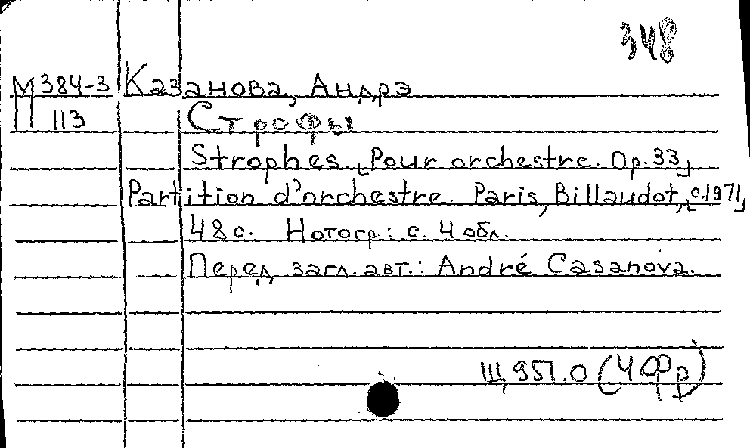 348
М 384-3 Казанова, Андрэ
П 113 Строфы
Strophes [Pour orchestre. Op. 33]
Partition d'orchestre. Paris, Billaudot, [c.1971]
48 с. Нотогр.: с. 4 обл.
Перед загл. авт.: André Casanova.
Щ957.0 (4Фр)